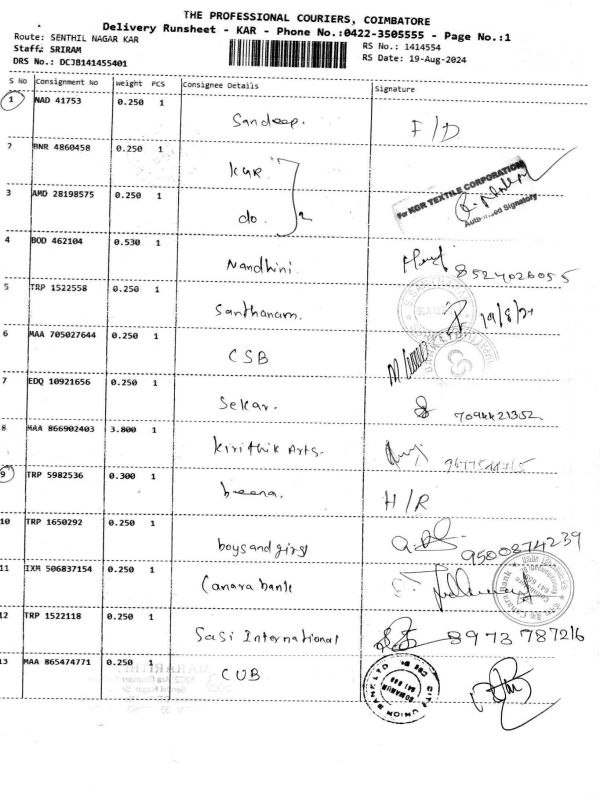 THE PROFESSIONAL COURIERS, COIMBATORE
Delivery Runsheet - KAR - Phone No.:0422-3505555 - Page No.:1
Route: SENTHIL NAGAR KAR
Staff: SRIRAM
DRS No.: DCJB141455401
RS No.: 1414554
RS Date: 19-Aug-2024
S No Consignment No Weight PCS Consignee Details Signature
1 NAD 41753 0.250 1
Sandeep. F/D
2 BNR 4860458 0.250 1
KGR
For KGR TEXTILE CORPORATION
3 AMD 28198575 0.250 1
do. 2
Authorised Signatory
4 BOD 462104 0.530 1
Nandhini. 8524026055
5 TRP 1522558 0.250 1
Santhanam. 19/8/24
6 MAA 705027644 0.250 1
CSB
7 EDQ 10921656 0.250 1
Sekar. 7094421352
8 MAA 866902403 3.800 1
Kirithik Arts.
9 TRP 5982536 0.300 1
beena. H/R
10 TRP 1650292 0.250 1
boys and girls 9500874239
11 IXM 506837154 0.250 1
Canara bank
12 TRP 1522118 0.250 1
Sasi International 8973787216
13 MAA 865474771 0.250 1
CUB
CITY UNION BANK LTD